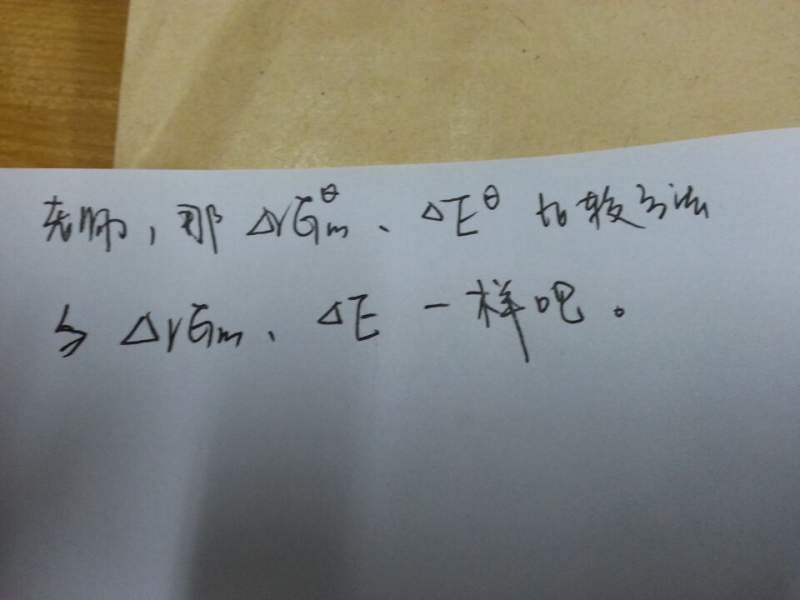 老师，那 ΔrGm^θ、ΔE^θ 比较方法
与 ΔrGm、ΔE 一样吧。